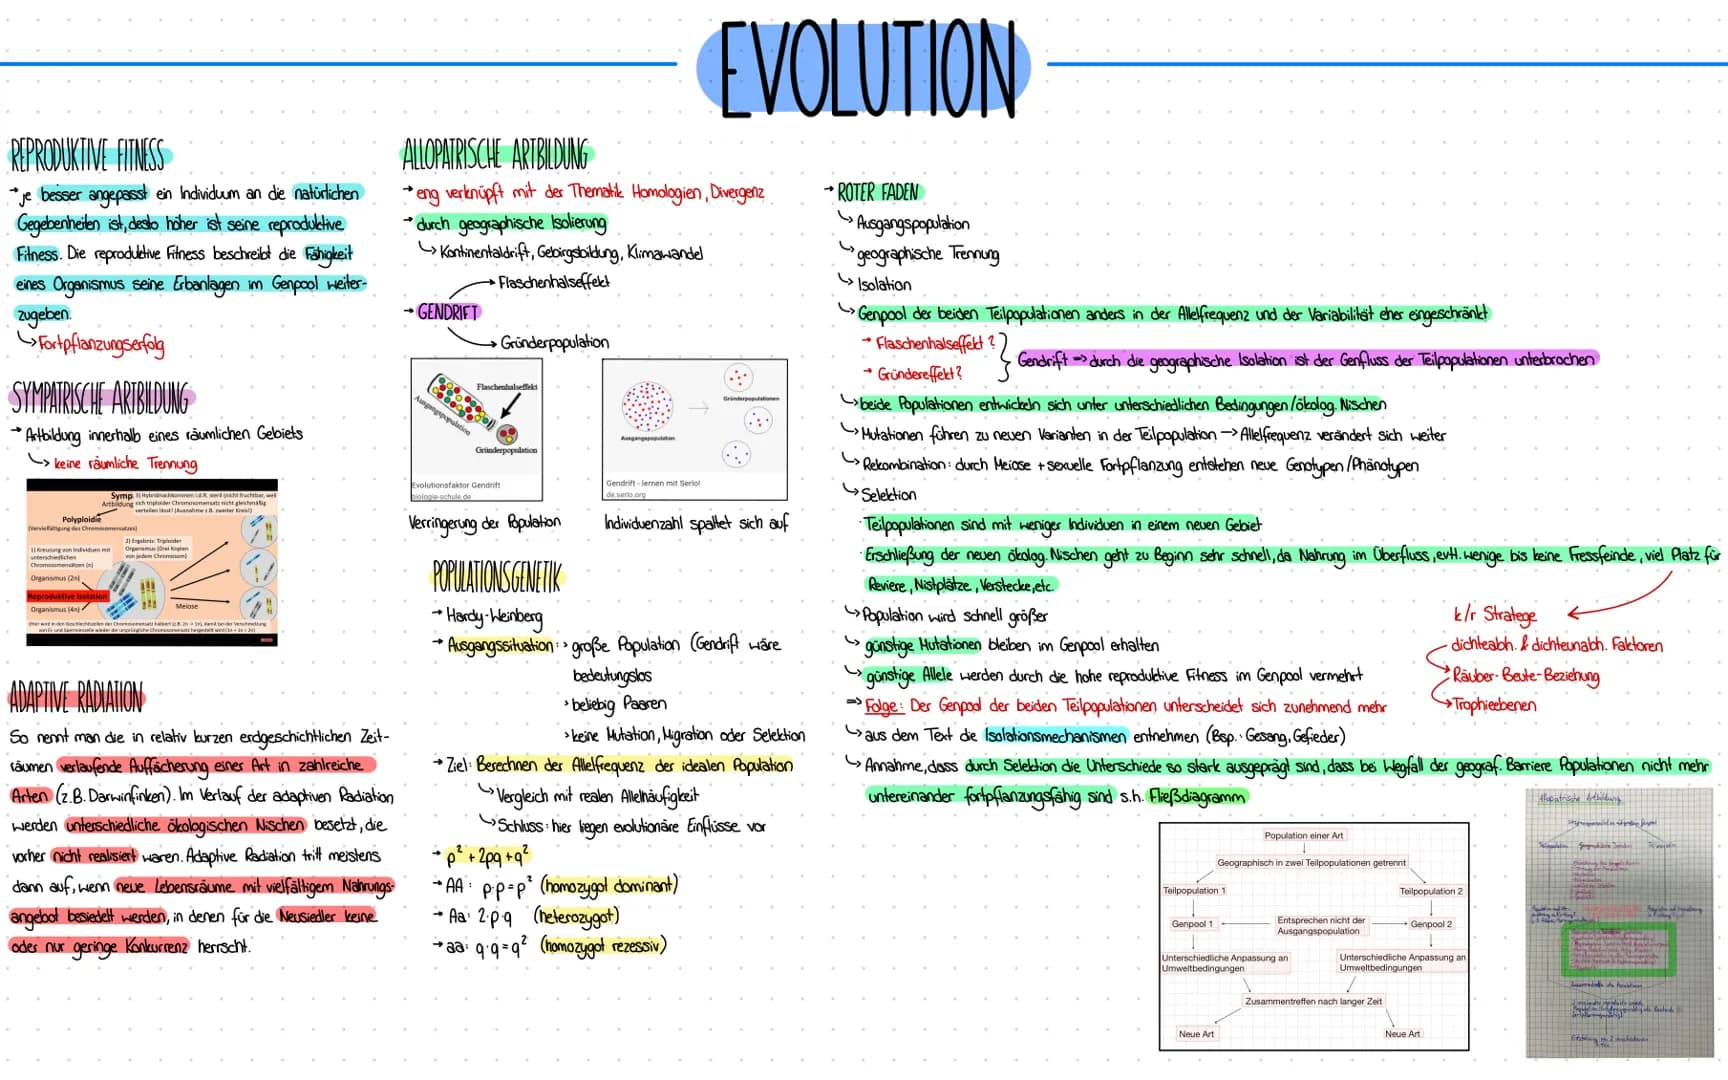 EVOLUTION
REPRODUKTIVE FITNESS
→ je besser angepasst ein Individuum an die natürlichen
Gegebenheiten ist, desto höher ist seine reproduktive
Fitness. Die reproduktive Fitness beschreibt die Fähigkeit
eines Organismus seine Erbanlagen im Genpool weiter-
zugeben.
↳ Fortpflanzungserfolg
SYMPATRISCHE ARTBILDUNG
→ Artbildung innerhalb eines räumlichen Gebiets
↳ keine räumliche Trennung
Symp
Artbildung
3) Hybridnachkommen i.d.R. steril (nicht fruchtbar, weil
sich triploider Chromosomensatz nicht gleichmäßig
verteilen lässt! (Ausnahme z.B. zweiter Kreis!)
Polyploidie
(Vervielfältigung des Chromosomensatzes)
2) Ergebnis: Triploider
Organismus (Drei Kopien
von jedem Chromosom)
1) Kreuzung von Individuen mit
unterschiedlichen
Chromosomensätzen (n)
Organismus (2n)
Reproduktive Isolation
Organismus (4n)
Meiose
ADAPTIVE RADIATION
So nennt man die in relativ kurzen erdgeschichtlichen Zeit-
räumen verlaufende Auffächerung einer Art in zahlreiche
Arten (z.B. Darwinfinken). Im Verlauf der adaptiven Radiation
werden unterschiedliche ökologischen Nischen besetzt, die
vorher nicht realisiert waren. Adaptive Radiation tritt meistens
dann auf, wenn neue Lebensräume mit vielfältigem Nahrungs-
angebot besiedelt werden, in denen für die Neusiedler keine
oder nur geringe Konkurrenz herrscht.
ALLOPATRISCHE ARTBILDUNG
→ eng verknüpft mit der Thematik Homologien, Divergenz
→ durch geographische Isolierung
↳ Kontinentaldrift, Gebirgsbildung, Klimawandel
→ Flaschenhalseffekt
→ GENDRIFT
→ Gründerpopulation
Flaschenhalseffekt
Ausgangspopulation
Gründerpopulation
Evolutionsfaktor Gendrift
biologie-schule.de
Gründerpopulationen
Ausgangspopulation
Gendrift - lernen mit Serlo!
de.serlo.org
Verringerung der Population
Individuenzahl spaltet sich auf
POPULATIONSGENETIK
→ Hardy-Weinberg
→ Ausgangssituation: › große Population (Gendrift wäre
bedeutungslos
› beliebig Paaren
› keine Mutation, Migration oder Selektion
→ Ziel: Berechnen der Allelfrequenz der idealen Population
↳ Vergleich mit realen Allelhäufigkeit
↳ Schluss: hier liegen evolutionäre Einflüsse vor
→ p² + 2pq + q²
→ AA: p·p = p² (homozygot dominant)
→ Aa: 2·p·q (heterozygot)
→ aa: q·q = q² (homozygot rezessiv)
→ ROTER FADEN
↳ Ausgangspopulation
↳ geographische Trennung
↳ Isolation
↳ Genpool der beiden Teilpopulationen anders in der Allelfrequenz und der Variabilität eher eingeschränkt
→ Flaschenhalseffekt?
→ Gründereffekt?
} Gendrift => durch die geographische Isolation ist der Genfluss der Teilpopulationen unterbrochen
↳ beide Populationen entwickeln sich unter unterschiedlichen Bedingungen/ökolog. Nischen
↳ Mutationen führen zu neuen Varianten in der Teilpopulation → Allelfrequenz verändert sich weiter
↳ Rekombination: durch Meiose + sexuelle Fortpflanzung entstehen neue Genotypen/Phänotypen
↳ Selektion
· Teilpopulationen sind mit weniger Individuen in einem neuen Gebiet
· Erschließung der neuen ökolog. Nischen geht zu Beginn sehr schnell, da Nahrung im Überfluss, evtl. wenige bis keine Fressfeinde, viel Platz für
Reviere, Nistplätze, Verstecke, etc.
↳ Population wird schnell größer
↳ günstige Mutationen bleiben im Genpool erhalten
↳ günstige Allele werden durch die hohe reproduktive Fitness im Genpool vermehrt
=> Folge: Der Genpool der beiden Teilpopulationen unterscheidet sich zunehmend mehr
↳ aus dem Text die Isolationsmechanismen entnehmen (Bsp.: Gesang, Gefieder)
↳ Annahme, dass durch Selektion die Unterschiede so stark ausgeprägt sind, dass bei Wegfall der geograf. Barriere Populationen nicht mehr
untereinander fortpflanzungsfähig sind s.h. Fließdiagramm
k/r Stratege
dichteabh. & dichteunabh. Faktoren
Räuber-Beute-Beziehung
Trophieebenen
Population einer Art
Geographisch in zwei Teilpopulationen getrennt
Teilpopulation 1
Teilpopulation 2
Genpool 1
Entsprechen nicht der
Ausgangspopulation
Genpool 2
Unterschiedliche Anpassung an
Umweltbedingungen
Unterschiedliche Anpassung an
Umweltbedingungen
Zusammentreffen nach langer Zeit
Neue Art
Neue Art
Allopatrische Artbildung